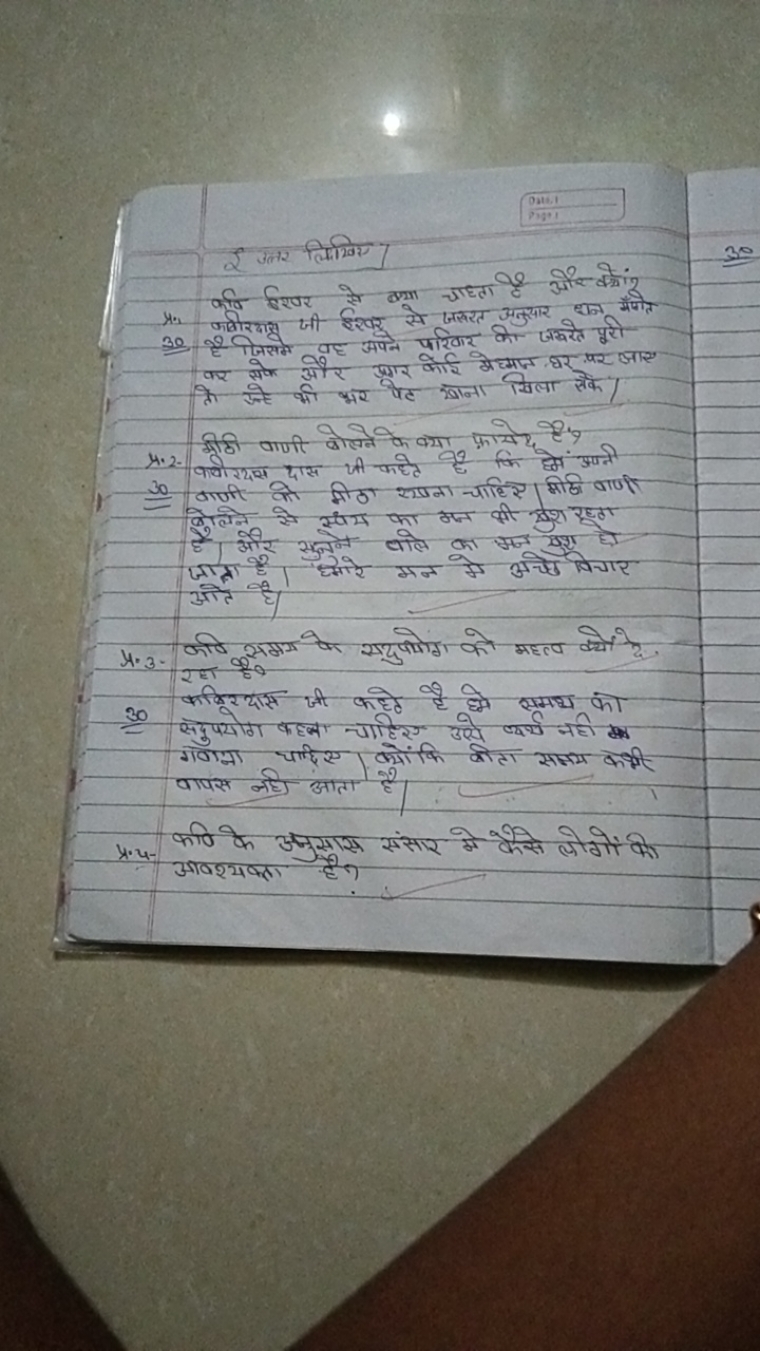 Date:
Page:
उत्तर लिखिए।
प्र.1 कवि ईश्वर से क्या चाहता है और क्यों?
30 कबीरदास जी ईश्वर से जरूरत अनुसार धन माँगते
है जिससे वह अपने परिवार की जरूरते पूरी
कर सके और अगर कोई मेहमान घर पर जाए
तो उन्हे भी भर पेट खाना खिला सके।
प्र.2- मीठी वाणी बोलने के क्या फ़ायदे है?
30 कबीरदास दास जी कहते है कि हमें अपनी
वाणी को मीठा रखना चाहिए। मीठी वाणी
बोलने से स्वंय का मन भी खुश रहता
है। और सुनने वाले का मन खुश हो
जाता है। हमारे मन मे अच्छे विचार
आते है।
प्र.3- कवि समय के सदुपयोग को महत्व क्यों दे
रहा है?
30 कबिरदास जी कहते है हमे समय का
सदुपयोग करना चाहिए उसे व्यर्थ नही
गवाना चाहिए। क्योंकि बीता समय कभी
वापस नही आता है।
प्र.4- कवि के अनुसार संसार मे कैसे लोगों की
आवश्यकता है?
30